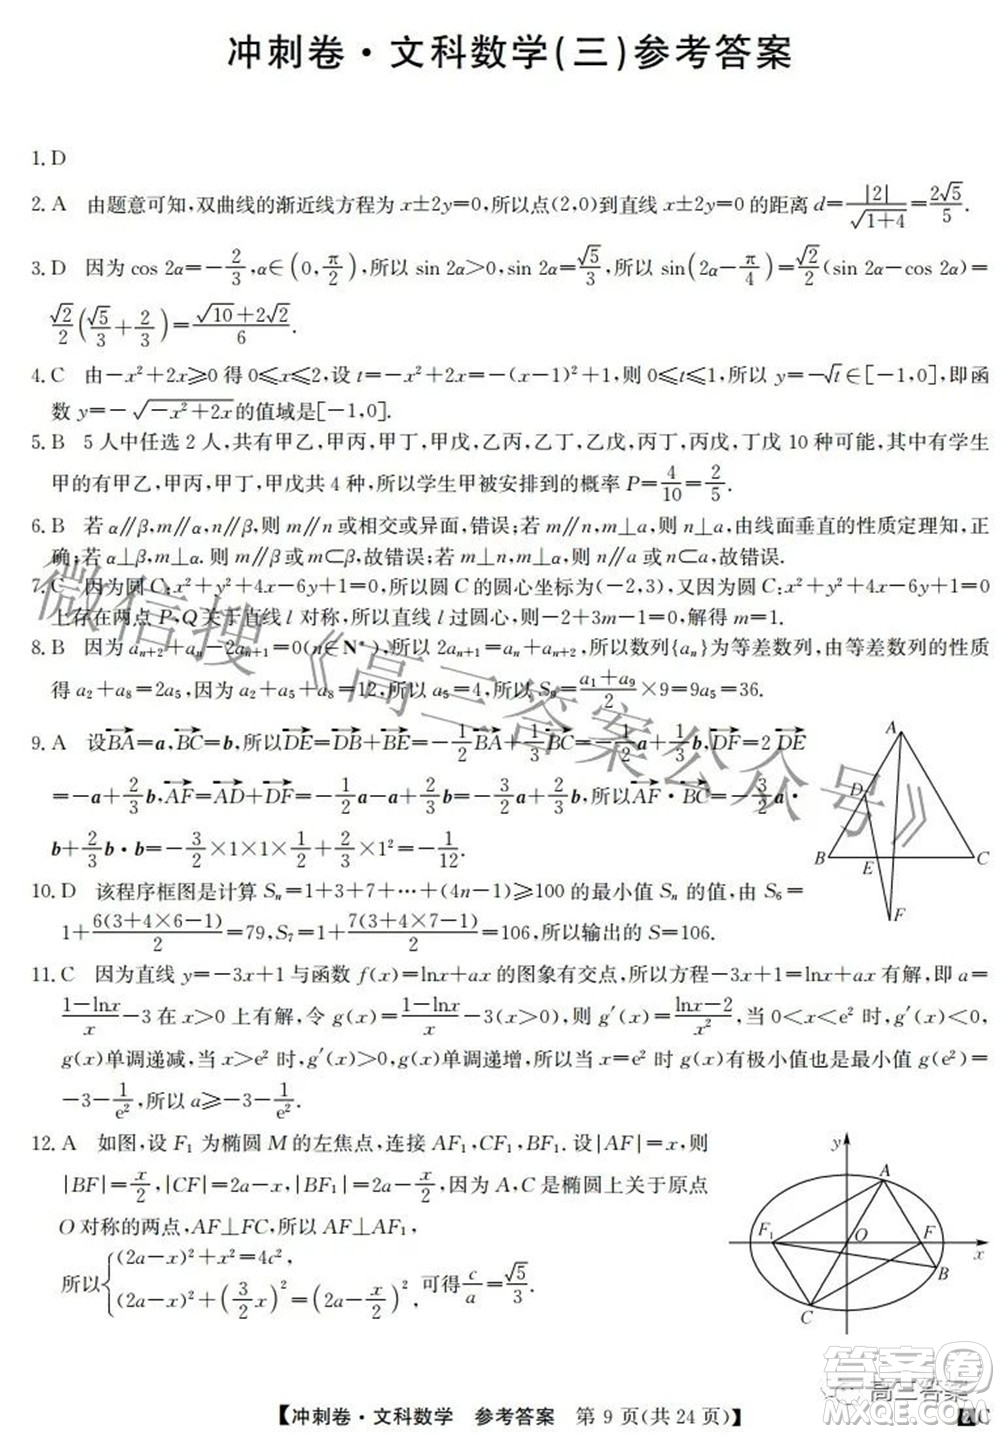 冲刺卷·文科数学(三)参考答案
1. D
2. A 由题意可知,双曲线的渐近线方程为 x±2y=0,所以点(2,0)到直线 x±2y=0 的距离 d=|2|/√(1+4)=2√5/5.
3. D 因为 cos 2α=-2/3,α∈(0,π/2),所以 sin 2α>0,sin 2α=√5/3,所以 sin(2α-π/4)=√2/2(sin 2α-cos 2α)=
√2/2(√5/3+2/3)=(√10+2√2)/6.
4. C 由-x²+2x≥0 得 0≤x≤2,设 t=-x²+2x=-(x-1)²+1,则 0≤t≤1,所以 y=-√t∈[-1,0],即函
数 y=-√(-x²+2x)的值域是[-1,0].
5. B 5 人中任选 2 人,共有甲乙,甲丙,甲丁,甲戊,乙丙,乙丁,乙戊,丙丁,丙戊,丁戊 10 种可能,其中有学生
甲的有甲乙,甲丙,甲丁,甲戊共 4 种,所以学生甲被安排到的概率 P=4/10=2/5.
6. B 若 α∥β,m∥α,n∥β,则 m∥n 或相交或异面,错误;若 m∥n,m⊥a,则 n⊥a,由线面垂直的性质定理知,正
确;若 α⊥β,m⊥α.则 m∥β或 m⊂β,故错误;若 m⊥n,m⊥a,则 n∥a 或 n⊂a,故错误.
7. C 因为圆 C:x²+y²+4x-6y+1=0,所以圆 C 的圆心坐标为(-2,3),又因为圆 C:x²+y²+4x-6y+1=0
上存在两点 P,Q 关于直线 l 对称,所以直线 l 过圆心,则-2+3m-1=0,解得 m=1.
8. B 因为 aₙ₊₂+aₙ-2aₙ₊₁=0(n∈N*),所以 2aₙ₊₁=aₙ+aₙ₊₂,所以数列{aₙ}为等差数列,由等差数列的性质
得 a₂+a₈=2a₅,因为 a₂+a₅+a₈=12,所以 a₅=4,所以 S₉=(a₁+a₉)/2×9=9a₅=36.
9. A 设BA→=a,BC→=b,所以DE→=DB→+BE→=-1/2BA→+1/3BC→=-1/2a+1/3b,DF→=2 DE→
=-a+2/3b,AF→=AD→+DF→=-1/2a-a+2/3b=-3/2a+2/3b.所以AF→·BC→=-3/2a·
b+2/3b·b=-3/2×1×1×1/2+2/3×1²=-1/12.
A
D
B
E
C
F
10. D 该程序框图是计算 Sₙ=1+3+7+⋯+(4n-1)≥100 的最小值 Sₙ 的值,由 S₆=
1+6(3+4×6-1)/2=79,S₇=1+7(3+4×7-1)/2=106,所以输出的 S=106.
11. C 因为直线 y=-3x+1 与函数 f(x)=lnx+ax 的图象有交点,所以方程-3x+1=lnx+ax 有解,即 a=
(1-lnx)/x-3 在 x>0 上有解,令 g(x)=(1-lnx)/x-3(x>0),则 g′(x)=(lnx-2)/x²,当 0<x<e² 时,g′(x)<0,
g(x)单调递减,当 x>e² 时,g′(x)>0,g(x)单调递增,所以当 x=e² 时 g(x)有极小值也是最小值 g(e²)=
-3-1/e²,所以 a≥-3-1/e².
12. A 如图,设 F₁ 为椭圆 M 的左焦点,连接 AF₁,CF₁,BF₁.设|AF|=x,则
|BF|=x/2,|CF|=2a-x,|BF₁|=2a-x/2,因为 A,C 是椭圆上关于原点
O 对称的两点,AF⊥FC,所以 AF⊥AF₁,
所以{(2a-x)²+x²=4c²,
(2a-x)²+(3/2x)²=(2a-x/2)²,可得c/a=√5/3.
y
A
F₁
O
F
x
B
C
微信搜《高三答案公众号》
答案卷
高三答案
【冲刺卷·文科数学 参考答案 第 9 页(共 24 页)】